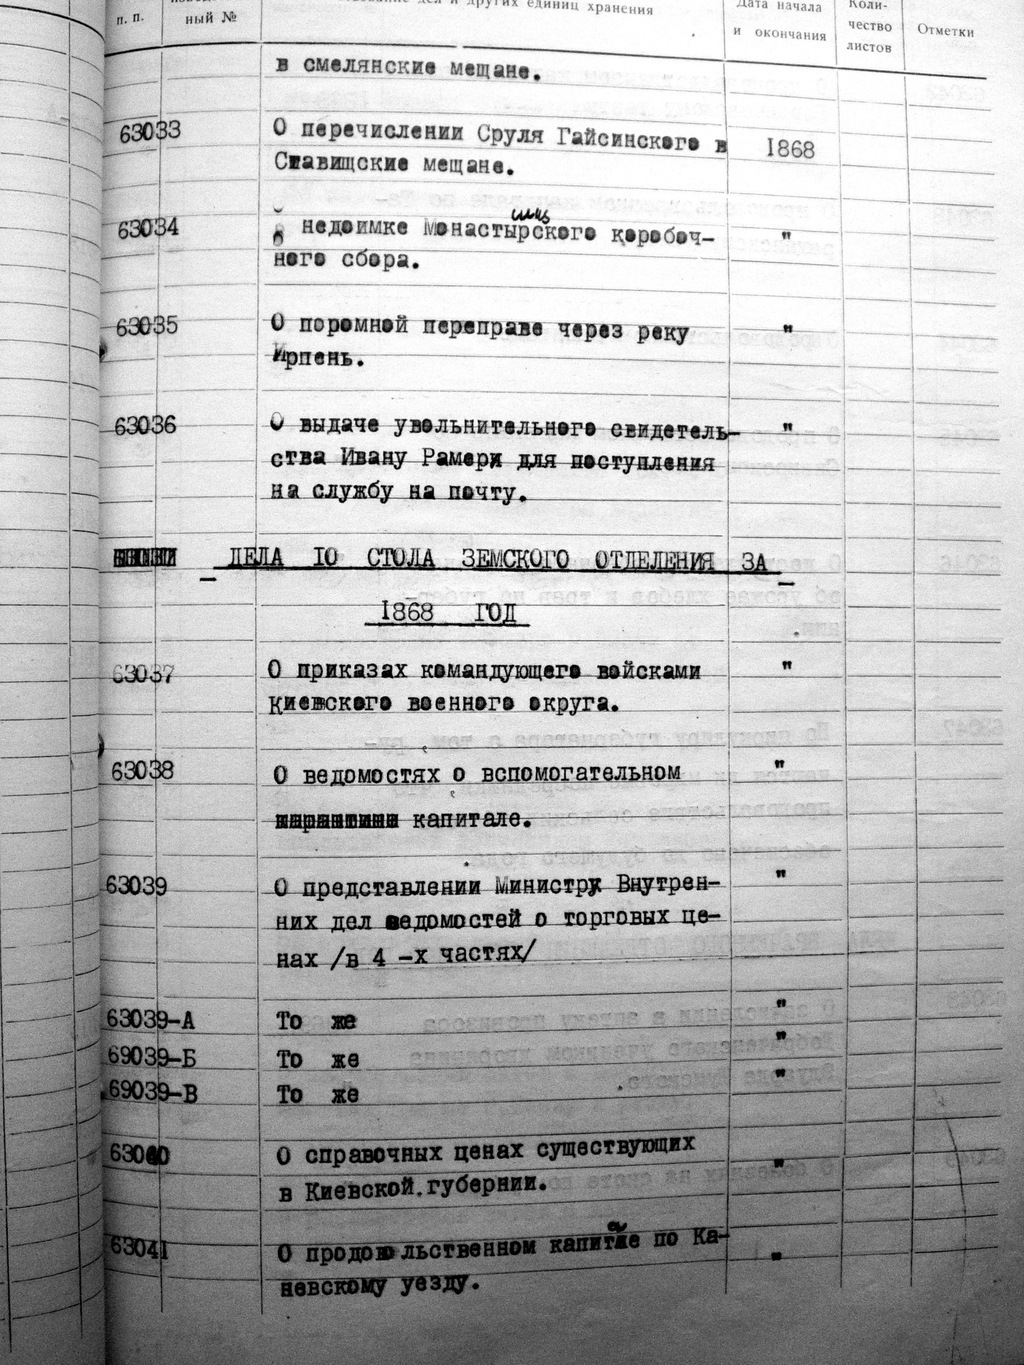 п. п.
ный №
дел и других единиц хранения
Дата начала
и окончания
Коли-
чество
листов
Отметки
в смелянские мещане.
63033 О перечислении Сруля Гайсинского в 1868
Ставищские мещане.
63034 недоимке Монастырского коробоч- "
ного сбора.
63035 О поромной переправе через реку "
Ирпень.
63036 О выдаче увольнительного свидетель- "
ства Ивану Рамери для поступления
на службу на почту.
ДЕЛА 10 СТОЛА ЗЕМСКОГО ОТДЕЛЕНИЯ ЗА
1868 ГОД
63037 О приказах командующего войсками "
Киевского военного округа.
63038 О ведомостях о вспомогательном "
капитале.
63039 О представлении Министру Внутрен- "
них дел ведомостей о торговых це-
нах /в 4 -х частях/
63039-А То же "
69039-Б То же "
69039-В То же "
63040 О справочных ценах существующих "
в Киевской губернии.
63041 О продовольственном капитале по Ка- "
невскому уезду.